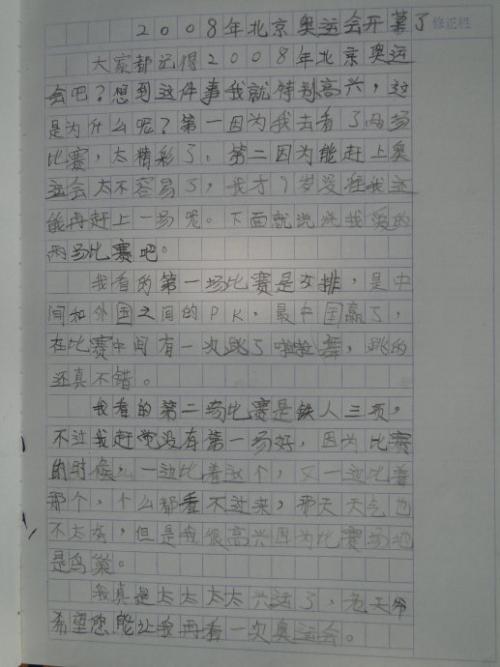 2008年北京奥运会开幕了 修正栏
大家都记得2008年北京奥运
会吧?想到这件事我就特别高兴,这
是为什么呢?第一因为我去看了两场
比赛,太精彩了。第二因为能赶上奥
运会太不容易了,我才7岁没准我还
能再赶上一场呢。下面就说说我看的
两场比赛吧。
我看的第一场比赛是女排,是中
间和外国之间的PK,最中国赢了,
在比赛中间有一次跳了啦啦舞,跳的
还真不错。
我看的第二场比赛是铁人三项,
不过我赶觉没有第一场好,因为比赛
的时候,一边比着这个,又一边比着
那个,什么都看不过来,那天天气也
不太好,但是我很高兴因为比赛场地
是鸟巢。
我真是太太太太兴运了,老天爷
希望您能让我再看一次奥运会。